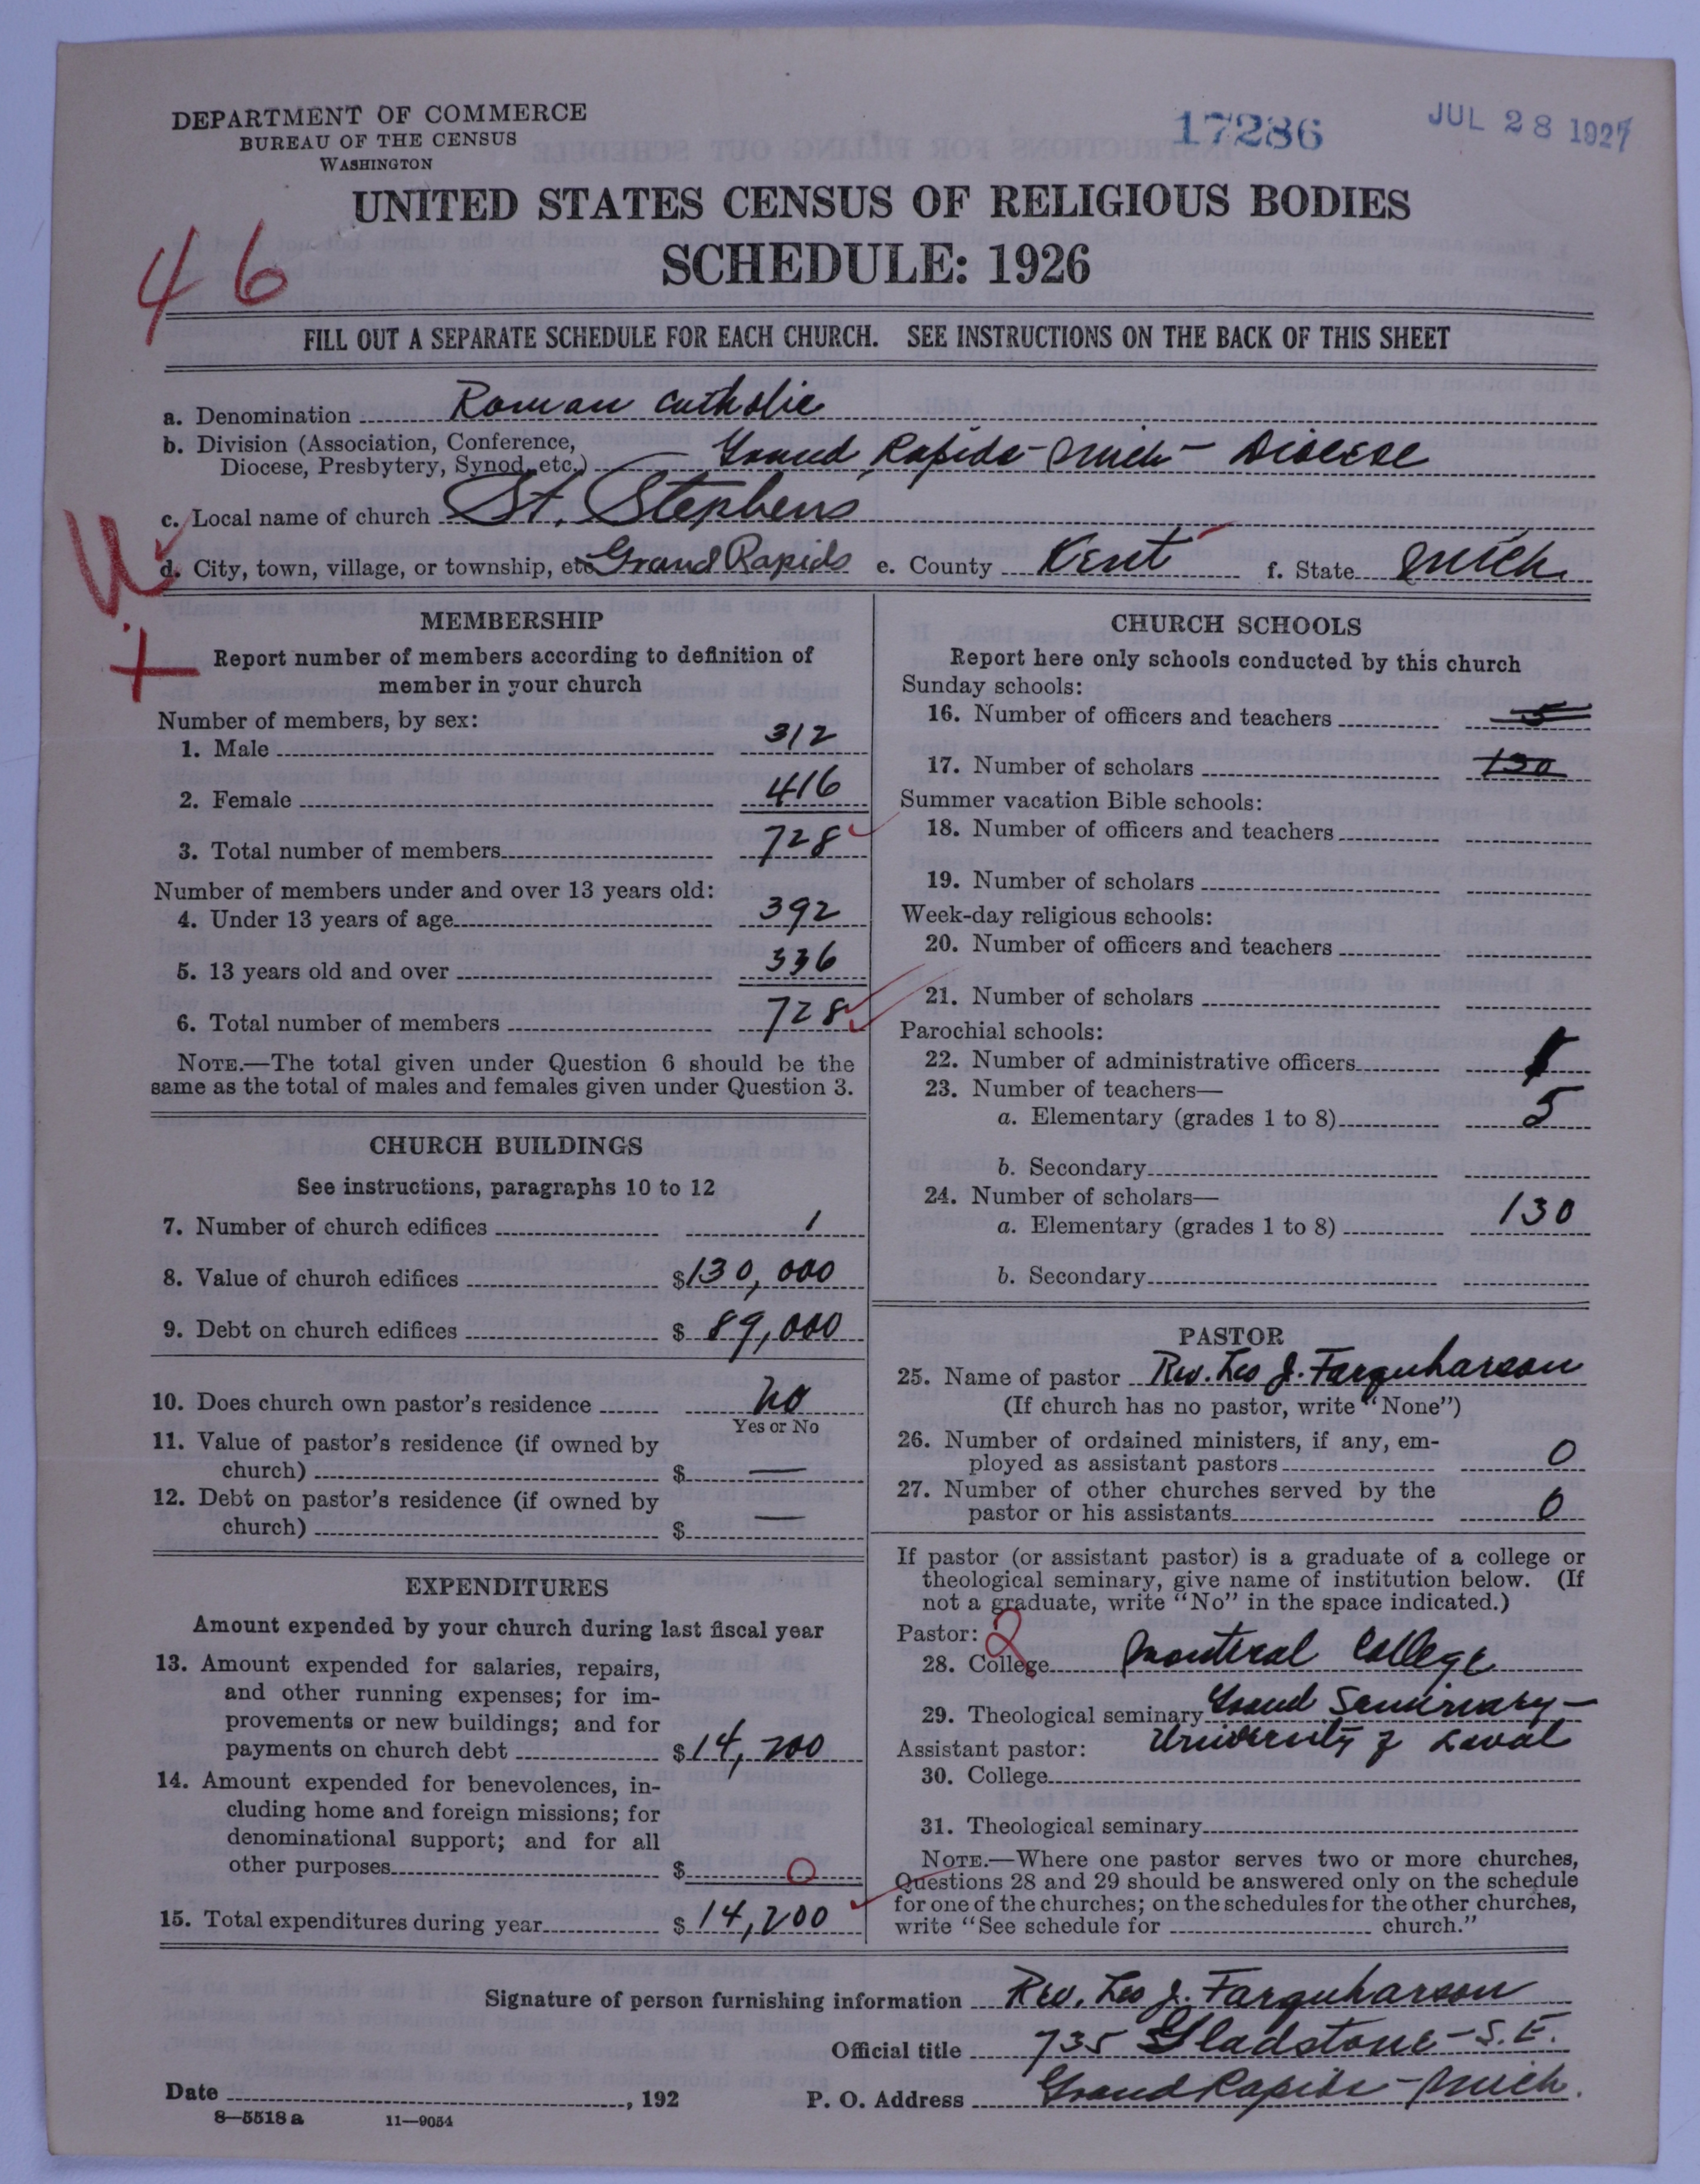 DEPARTMENT OF COMMERCE
BUREAU OF THE CENSUS
WASHINGTON
17286
JUL 28 1927
UNITED STATES CENSUS OF RELIGIOUS BODIES
SCHEDULE: 1926
46
FILL OUT A SEPARATE SCHEDULE FOR EACH CHURCH. SEE INSTRUCTIONS ON THE BACK OF THIS SHEET
a. Denomination Roman Catholic
b. Division (Association, Conference,
Diocese, Presbytery, Synod, etc.) Grand Rapids - Mich - Diocese
c. Local name of church St. Stephens
d. City, town, village, or township, etc Grand Rapids e. County Kent f. State Mich
MEMBERSHIP
Report number of members according to definition of
member in your church
Number of members, by sex:
1. Male 312
2. Female 416
3. Total number of members 728
Number of members under and over 13 years old:
4. Under 13 years of age 392
5. 13 years old and over 336
6. Total number of members 728
NOTE.—The total given under Question 6 should be the
same as the total of males and females given under Question 3.
CHURCH BUILDINGS
See instructions, paragraphs 10 to 12
7. Number of church edifices 1
8. Value of church edifices $130,000
9. Debt on church edifices $ 89,000
10. Does church own pastor's residence No
Yes or No
11. Value of pastor's residence (if owned by
church) $ —
12. Debt on pastor's residence (if owned by
church) $ —
EXPENDITURES
Amount expended by your church during last fiscal year
13. Amount expended for salaries, repairs,
and other running expenses; for im-
provements or new buildings; and for
payments on church debt $14,200
14. Amount expended for benevolences, in-
cluding home and foreign missions; for
denominational support; and for all
other purposes $ 0
15. Total expenditures during year $ 14,200
CHURCH SCHOOLS
Report here only schools conducted by this church
Sunday schools:
16. Number of officers and teachers 5
17. Number of scholars 130
Summer vacation Bible schools:
18. Number of officers and teachers
19. Number of scholars
Week-day religious schools:
20. Number of officers and teachers
21. Number of scholars
Parochial schools:
22. Number of administrative officers 1
23. Number of teachers—
a. Elementary (grades 1 to 8) 5
b. Secondary
24. Number of scholars—
a. Elementary (grades 1 to 8) 130
b. Secondary
PASTOR
25. Name of pastor Rev. Leo J. Farquharson
(If church has no pastor, write "None")
26. Number of ordained ministers, if any, em-
ployed as assistant pastors 0
27. Number of other churches served by the
pastor or his assistants 0
If pastor (or assistant pastor) is a graduate of a college or
theological seminary, give name of institution below. (If
not a graduate, write "No" in the space indicated.)
Pastor: 2
28. College Montreal College
29. Theological seminary Grand Seminary -
Assistant pastor: University of Laval
30. College
31. Theological seminary
NOTE.—Where one pastor serves two or more churches,
Questions 28 and 29 should be answered only on the schedule
for one of the churches; on the schedules for the other churches,
write "See schedule for church."
Signature of person furnishing information Rev. Leo J. Farquharson
Official title 735 Gladstone - S.E.
Date , 192 P. O. Address Grand Rapids - Mich.
8—5518 a 11—9054